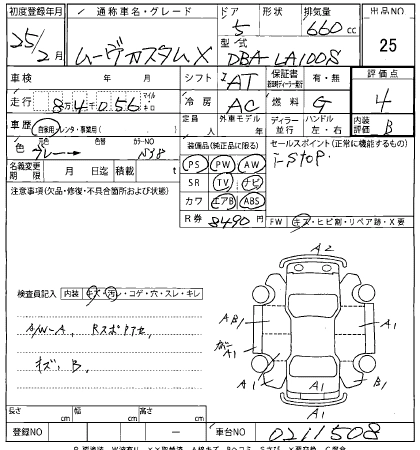 初度登録年月 通称車名・グレード ドア 形状 排気量 出品NO
25/2月 ムーヴカスタムX 5 660cc 25
型式 DBA-LA100S
車検 年 月 シフト IAT 保証書 有・無 評価点
走行 8万4056 マイル キロ 冷房 AC 燃料 G 4
車歴 自家用・レンタ・事業用( ) 定員 人 外車モデル 年 ディラー 並行 ハンドル 左・右 内装評価 B
色 グレー→ 元色 色替 カラーNO N38
装備品(純正品に限る) セールスポイント(正常に機能するもの)
PS PW AW i-stop.
名義変更期限 月 日迄 積載 t
SR TV ナビ
注意事項(欠品・修復・不具合箇所および状態)
カワ エアB ABS
R券 8490円 FW キズ・ヒビ割・リペア跡・X要
検査員記入 内装 キズ・汚レ・コゲ・穴・スレ・キレ
A/W-A, Rスポケアセ,
キズ, B,
A2
A B1 A1
A1 A1 B1
A1
A1
長さ cm 幅 cm 高さ cm
登録NO ー 車台NO 0211508